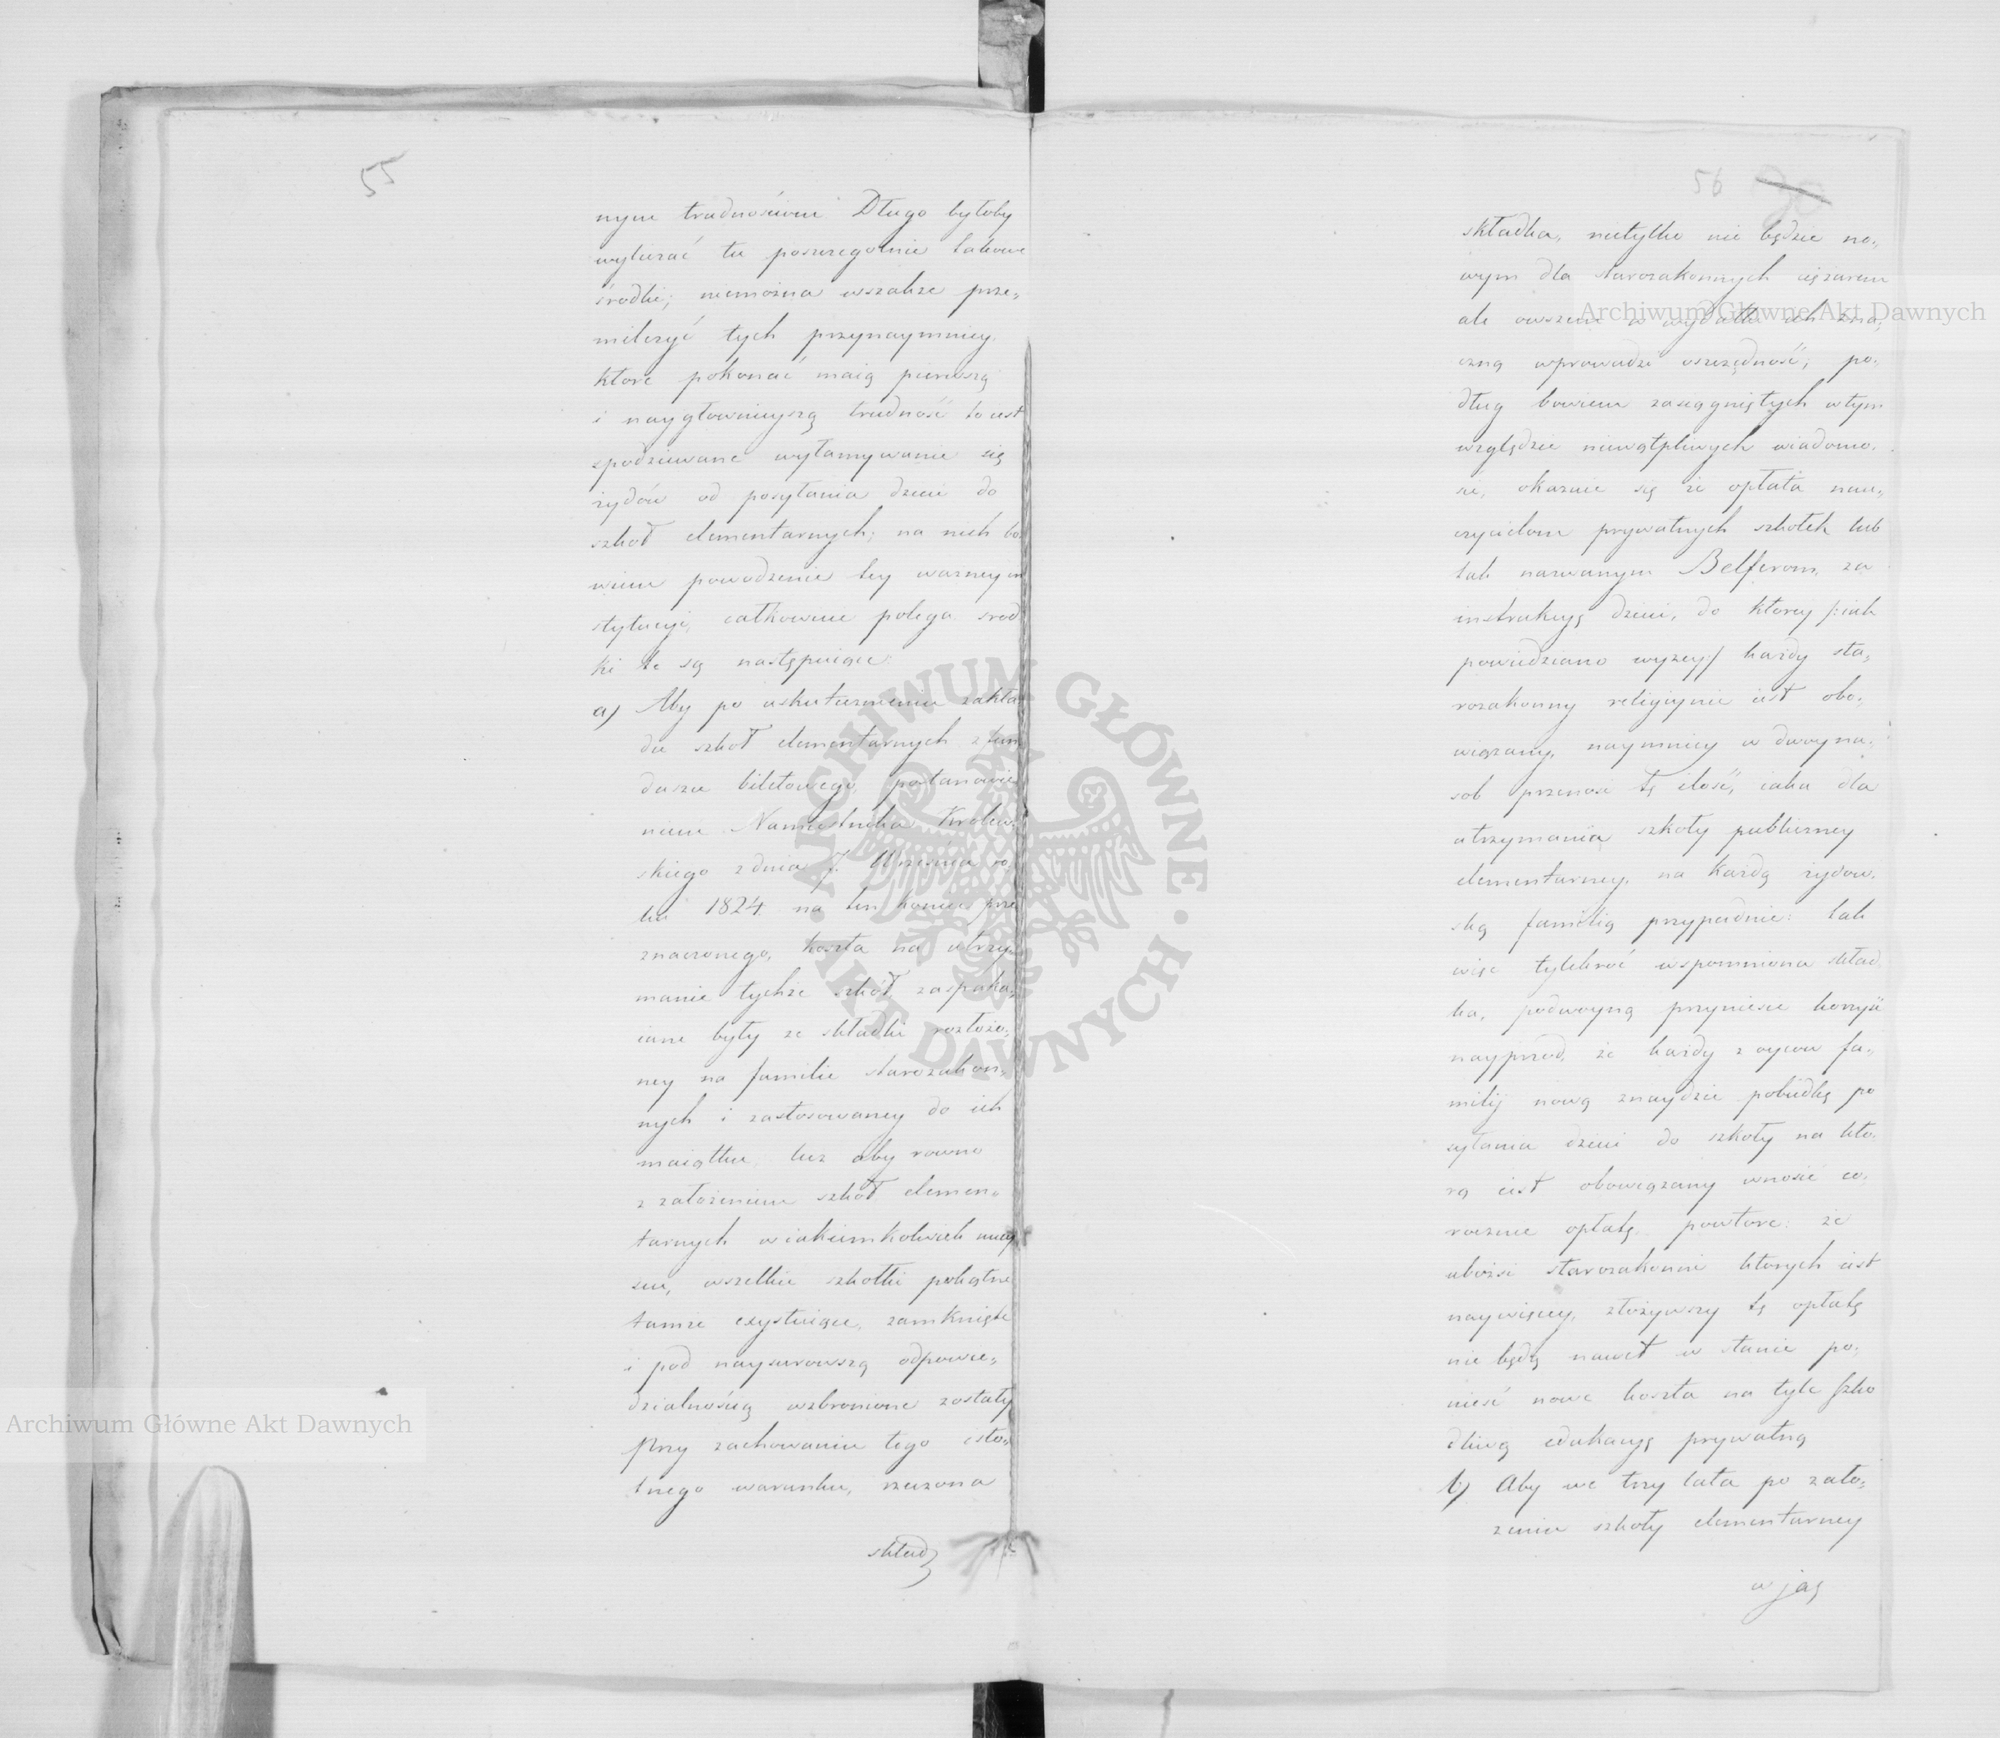 55
nym trudnościom Długo byłoby
wyliczać tu poszczególnie takowe
środki; niemożna wszakże prze„
milczyć tych przynaymniey,
ktore pokonać maią pierwszą
i naygłownieyszą trudność to iest
spodziewane wyłamywanie się
żydów od posyłania dzieci do
szkoł elementarnych; na nich bo
wiem powodzenie tey ważney in
stytucyi, całkowicie polega. srod
ki te są następuiące:
a) Aby po uskutecznieniu zakła
du szkoł elementarnych z fun
duszu biletowego, postanowie
niem Namiestnika Krolew„
skiego z dnia 7. Września ro„
ku 1824 na ten koniec prze
znaczonego, koszta na utrzy„
manie tychże szkół zaspoka„
iane były ze składki rozłożo„
ney na familie starozakon„
nych i zastosowaney do ich
maiątku, lecz aby rowno
z założeniem szkoł elemen„
tarnych w iakiemkolwiek miey
scu, wszelkie szkołki pokątne
tamże exystuiące, zamknięte
i pod naysurowszą odpowie„
dzialnością wzbronione zostały
Przy zachowaniu tego isto„
tnego warunku, rzeczona
skład
56 90
składka, nietylko nie będzie no„
wym dla starozakonnych ciężarem
ale owszem w wydatki ich zna„
czną wprowadzi oszczędność; po„
dług bowiem zasiągniętych w tym
względzie niewątpliwych wiadomo„
ści, okazuie się że opłata nau„
czycielom prywatnych szkołek lub
tak nazwanym Belferom, za
instrukcyę dzieci, do ktorey /:iak
powiedziano wyżey:/ każdy sta„
rozakonny religiynie iest obo„
wiązany, naymniey w dwoyna„
sob przenosi tę ilość, iaka dla
utrzymania szkoły publiczney
elementarney, na każdą żydow„
ską familią przypadnie: tak
więc tylekroć wspomniona skład
ka, podwoyną przyniesie korzyść
nayprzod, że każdy z oycow fa„
milij nową znaydzie pobudkę po
syłania dzieci do szkoły na kto„
rą iest obowiązany wnosić co„
rocznie opłatę powtore: że
ubożsi starozakonni ktorych iest
naywięcey, złożywszy tę opłatę
nie będą nawet w stanie po„
nieść nowe koszta na tyle szko
dliwą edukacyę prywatną
b) Aby we trzy lata po zało„
żeniu szkoły elementarney
w ję
Archiwum Główne Akt Dawnych
Archiwum Główne Akt Dawnych
ARCHIWUM GŁÓWNE · AKT DAWNYCH ·